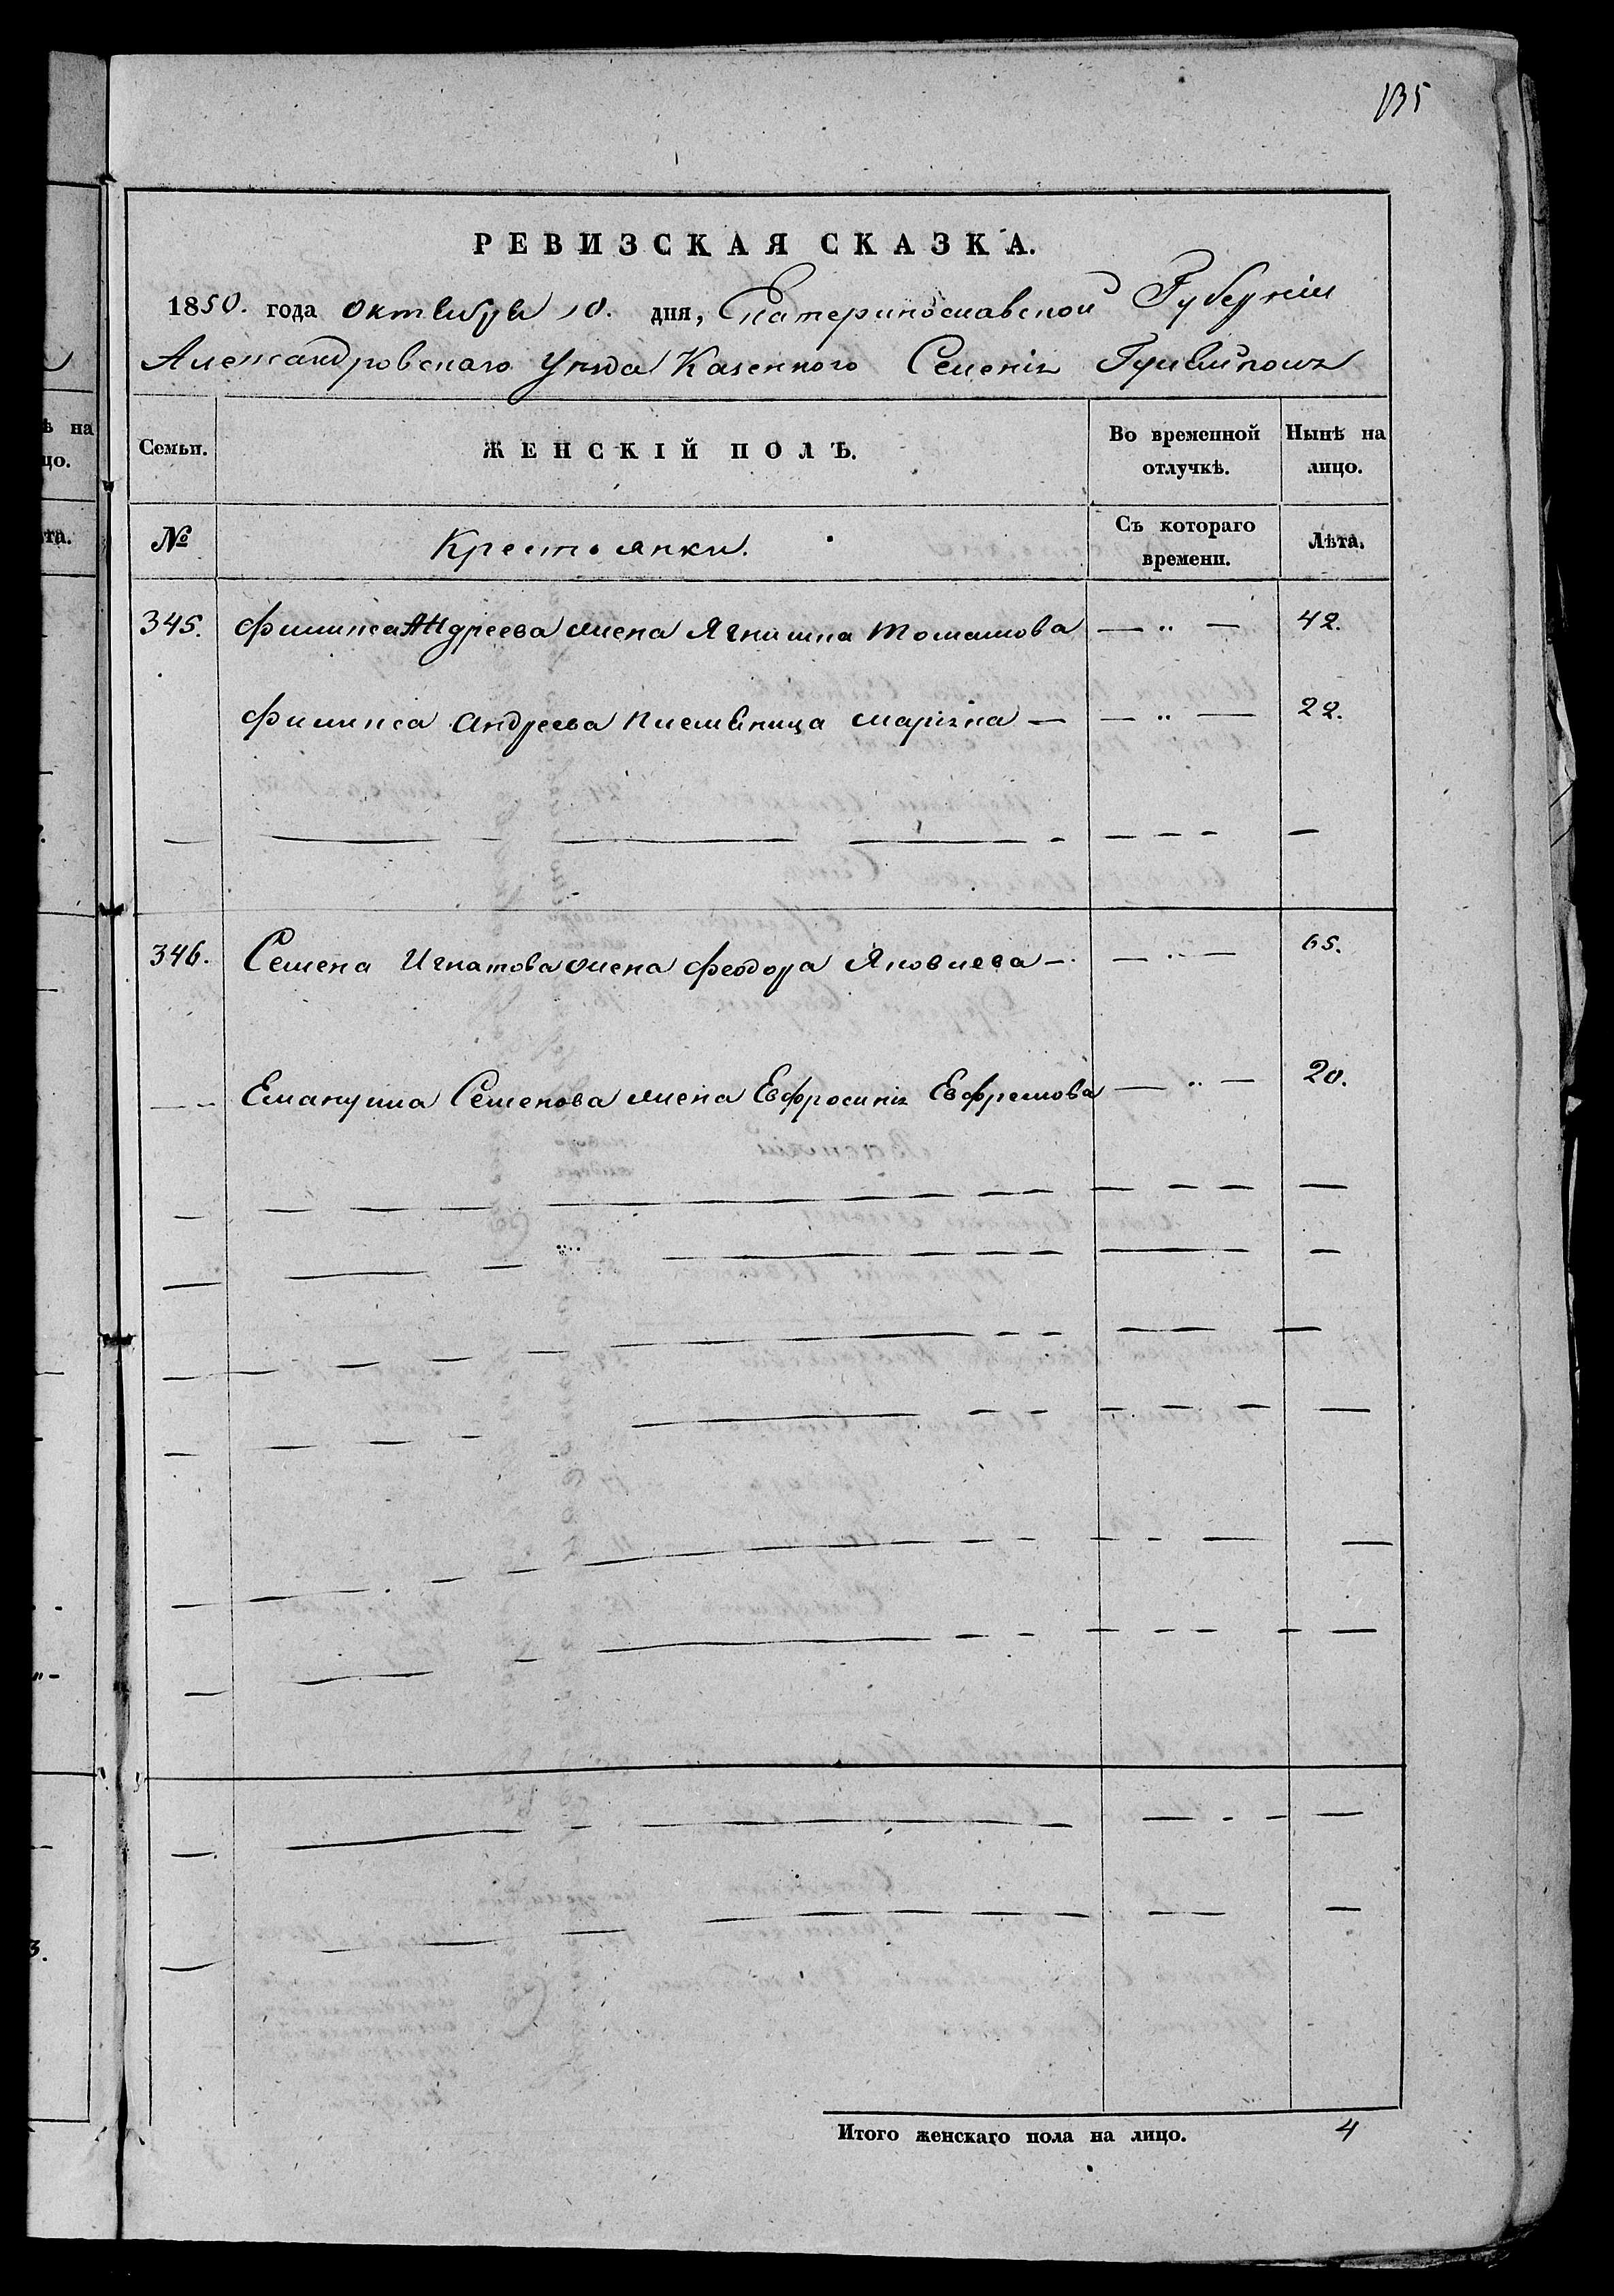 135
РЕВИЗСКАЯ СКАЗКА.
1850. года октября 10. дня, Екатеринославской Губерніи
Александровскаго Уѣзда Казенного Селенія Гуляйполя
Семьи. ЖЕНСКІЙ ПОЛЪ. Во временной отлучкѣ. Нынѣ на лицо.
№ Крестьянки. Съ котораго времени. Лѣта.
345. Филипа Андреева жена Ягнишка Томашова — „ — 42.
Филипа Андреева племяница Маріяна — — „ — 22.
346. Семена Игнатова жена Феодора Яковлева — — „ — 65.
Емануила Семенова жена Евфросинія Евфремова — „ — 20.
Итого женскаго пола на лицо. 4
ѣ на
цо.
та.
3.